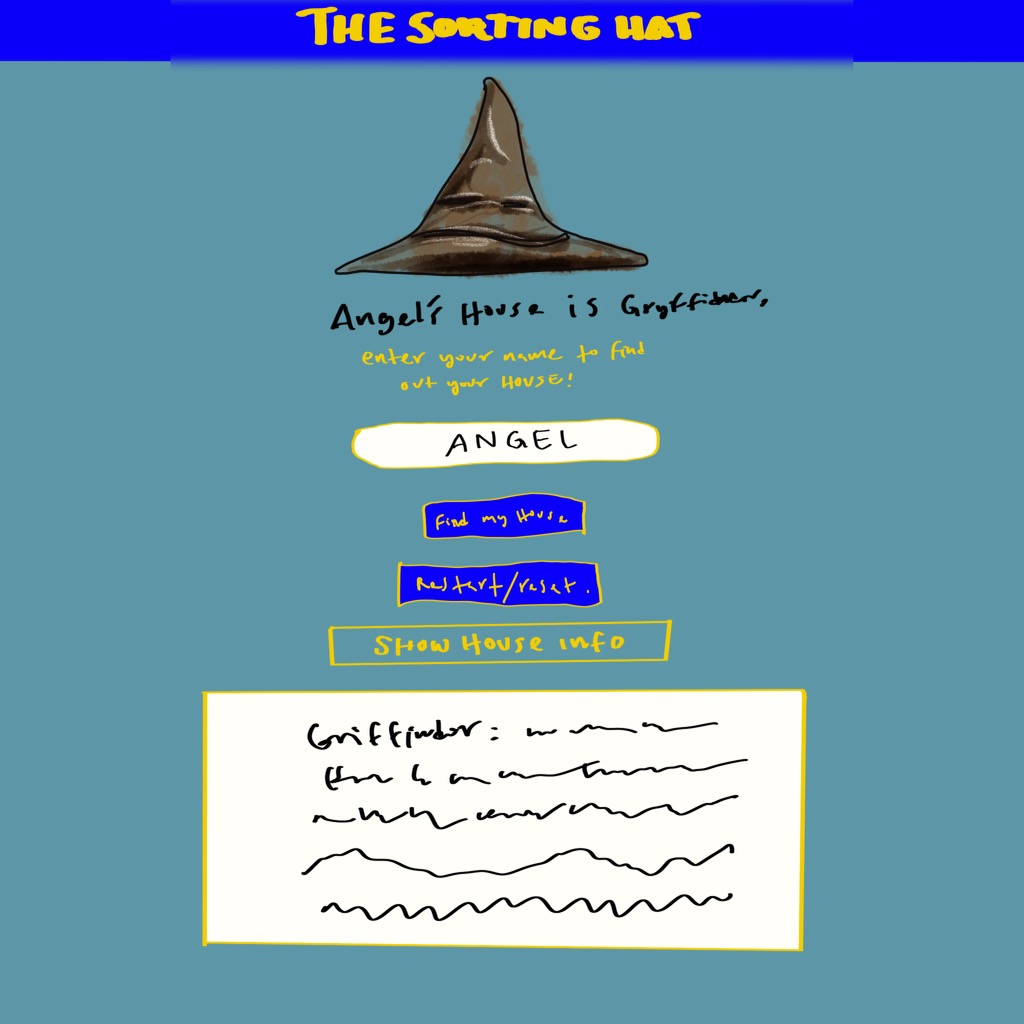 THE SORTING HAT
Angel's House is Gryffindor,
enter your name to find
out your HOUSE!
ANGEL
Find my House
Restart/reset.
SHOW HOUSE info
Griffindor: